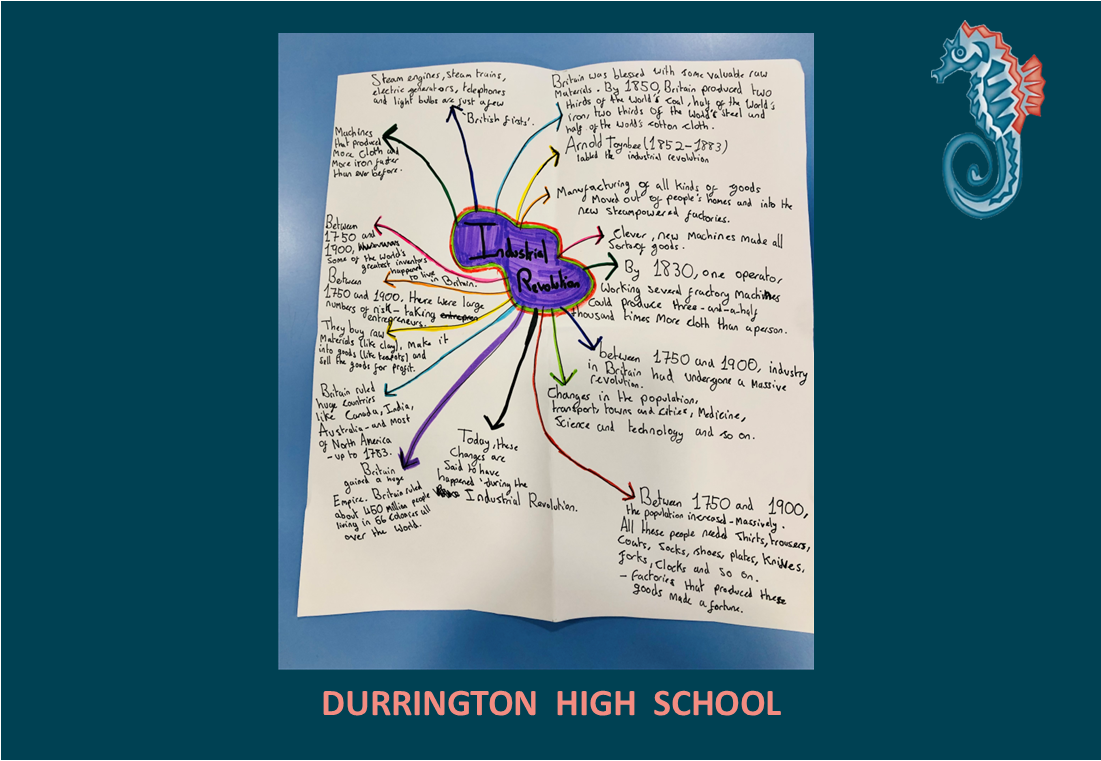 Steam engines, steam trains,
electric generators, telephones
and light bulbs are just a few
'British firsts'.
Britain was blessed with some valuable raw
Materials. By 1850, Britain produced two
thirds of the World's coal, half of the World's
iron, two thirds of the World's steel and
half of the World's cotton cloth.
Arnold Toynbee (1852-1883)
labled the industrial revolution
Manufacturing of all kinds of goods
Moved out of people's homes and into the
new steampowered factories.
Clever, new Machines made all
Sorts of goods.
By 1830, one operator,
Working several fractory Machines
Could produce three-and-a-half
thousand times More cloth than a person.
between 1750 and 1900, industry
in Britain had undergone a Massive
revolution.
Changes in the population,
transport, towns and cities, Medicine,
Science and technology and so on.
Between 1750 and 1900,
the population increased - Massively.
All these people needed Shirts, trousers,
Coats, Socks, shoes, plates, Knives,
forks, clocks and so on.
- factories that produced these
goods made a fortune.
Today, these
Changes are
Said to have
happened 'during the
Industrial Revolution.
Machines
that produced
More cloth and
More iron faster
than ever before.
Between
1750 and
1900,
Some of the world's
greatest inventors
happened
to live
in Britain.
Between
1750 and 1900, there were large
numbers of risk-taking
entrepreneurs.
They buy raw
Materials (like clay), Make it
into goods (like teapots) and
sell the goods for profit.
Britain ruled
huge countries
like Canada, India,
Australia - and most
of North America
- up to 1783.
Britain
gained a huge
Empire. Britain ruled
about 450 Million people
living in 56 colonies all
over the World.
Industrial
Revolution
DURRINGTON HIGH SCHOOL